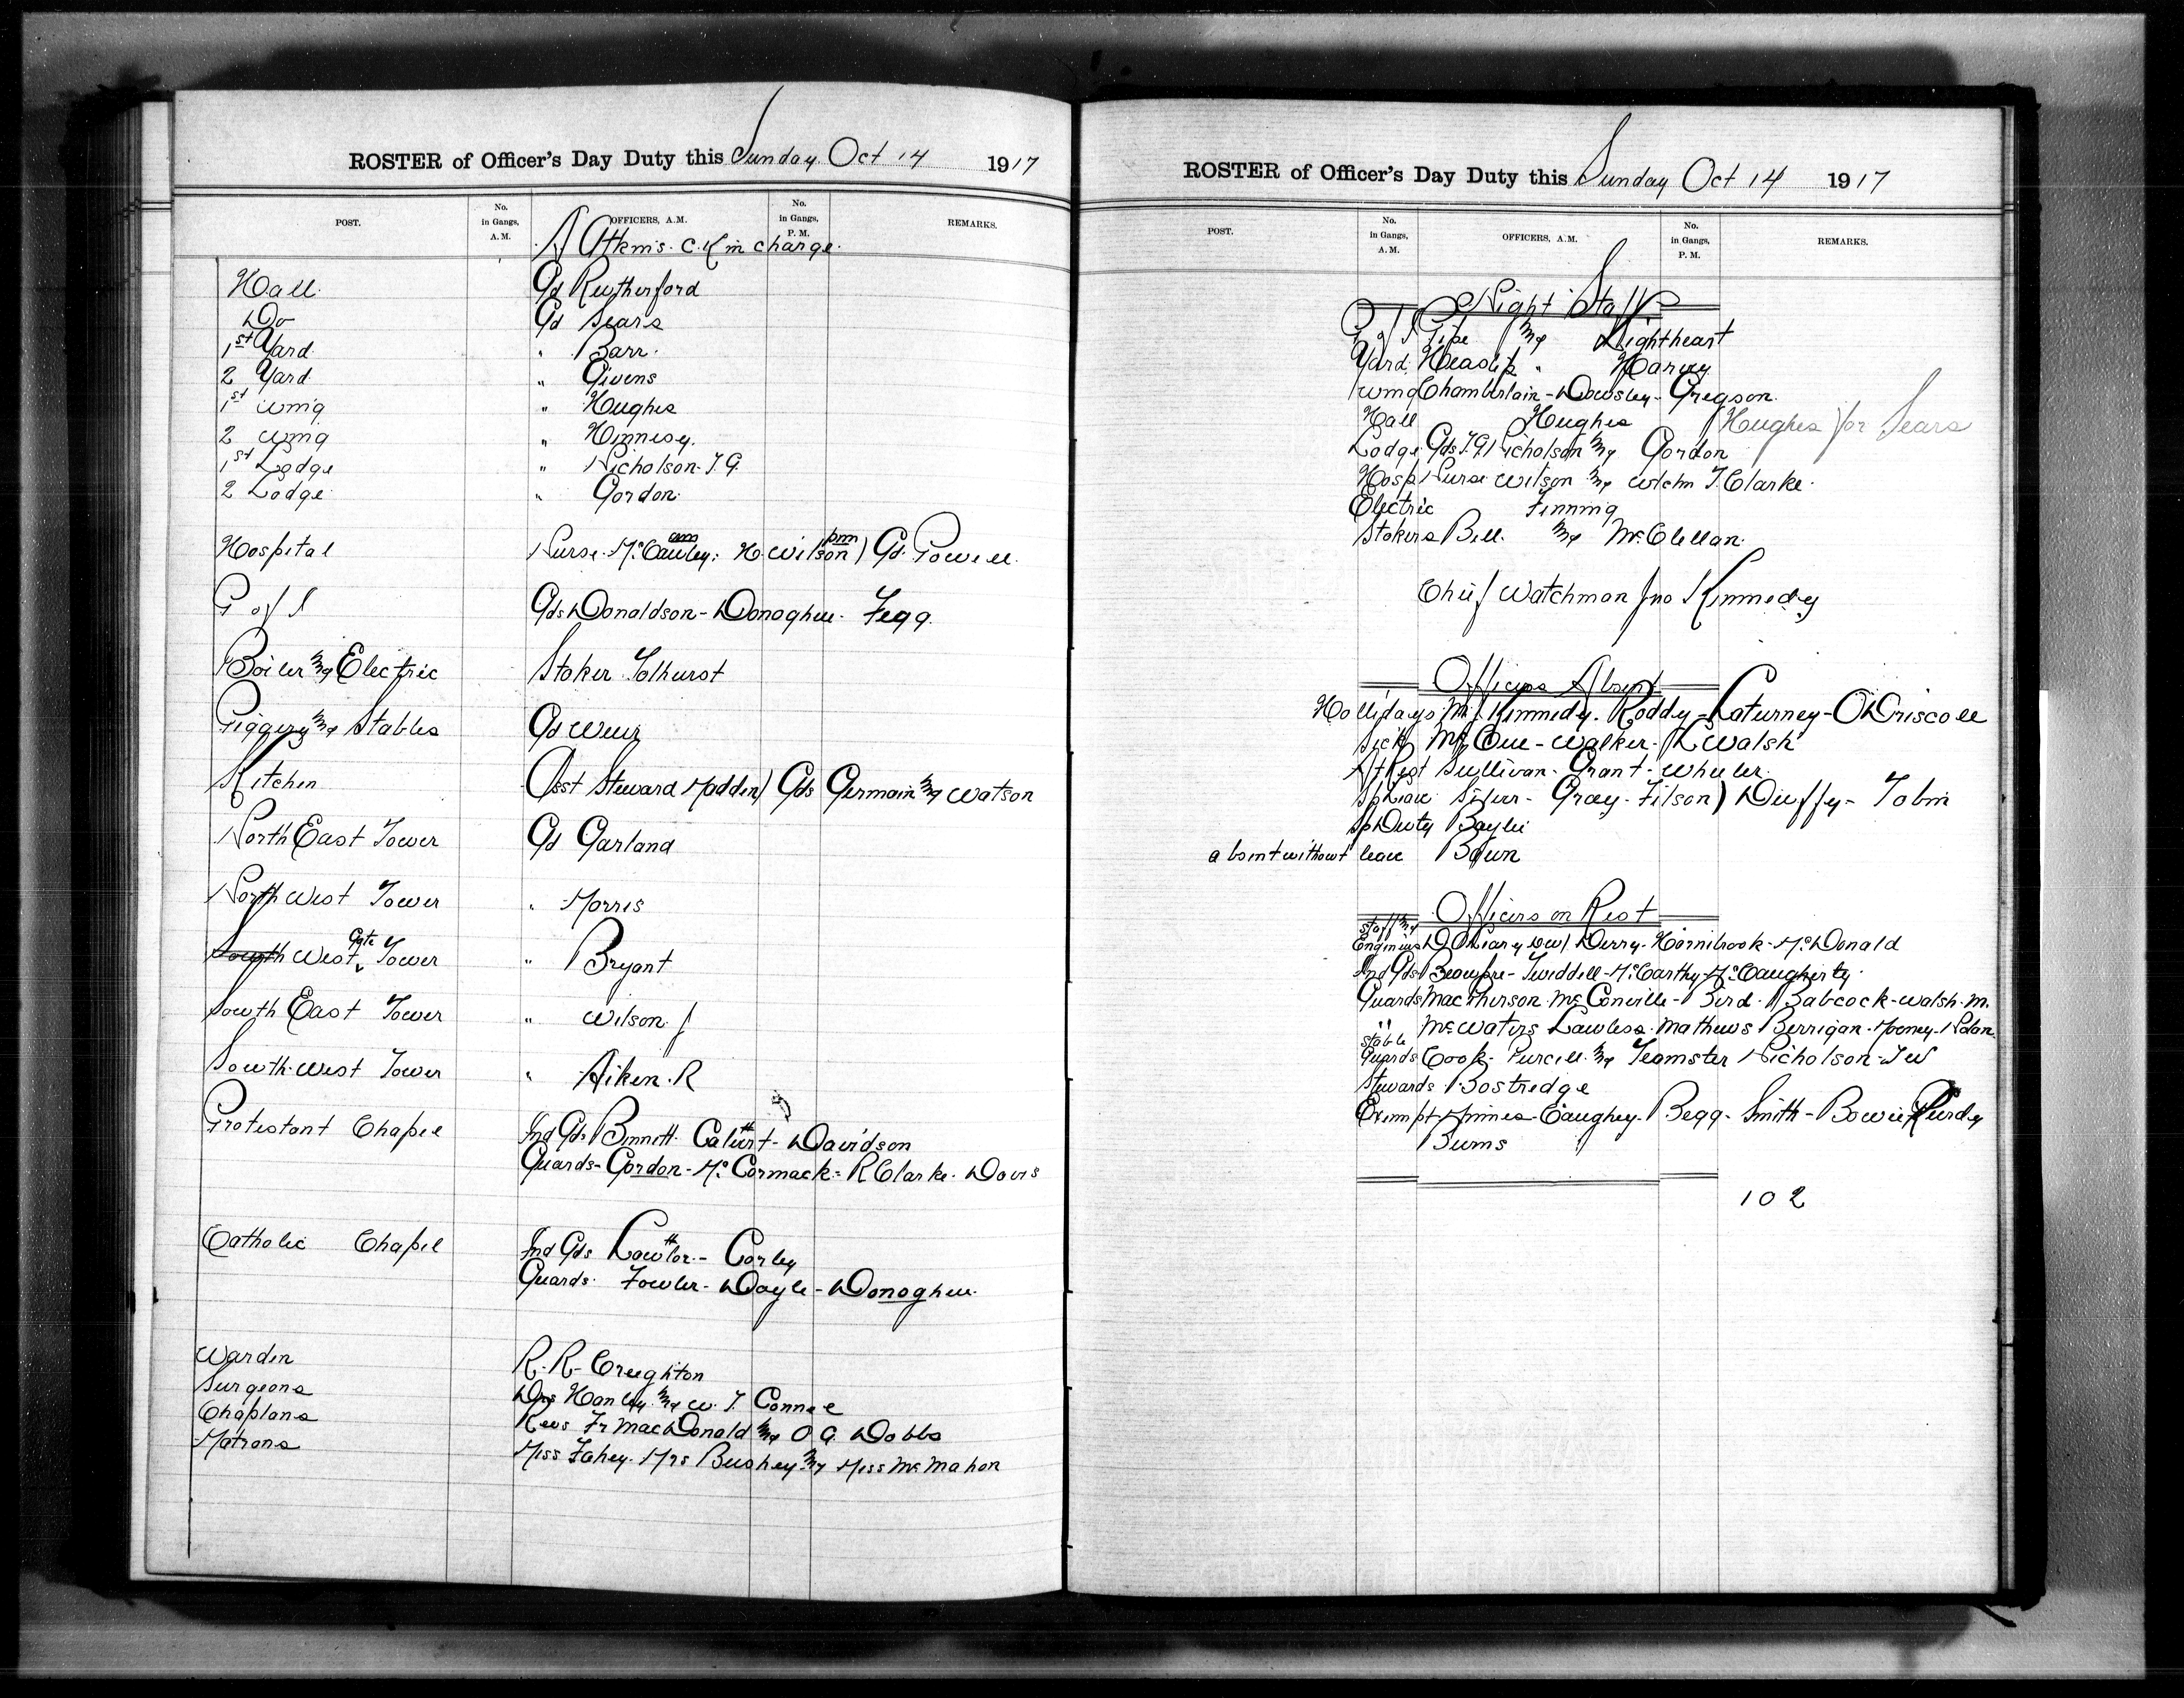 ROSTER of Officer's Day Duty this Sunday Oct 14 1917
POST. No. in Gangs, A. M. OFFICERS, A.M. No. in Gangs, P. M. REMARKS.
A Atkins. C.K in charge.
Hall. Gd Rutherford
Do Gd Sears
1st Yard. " Barr.
2 Yard. " Givens
1st Wing " Hughes
2 Wing " Hennesy.
1st Lodge " Nicholson T.G.
2 Lodge " Gordon.
Hospital Nurse McCauley am: H. Wilson pm) Gd. Powell.
P of I Gds Donaldson - Donoghue. Fegg.
Boiler & Electric Stoker Tolhurst
Piggery & Stables Gd Weir
Kitchen Asst Steward Madden) Gds Germain & Watson
North East Tower Gd Garland
North West Tower " Morris
South West Gate Tower " Bryant
South East Tower " Wilson J
South West Tower " Aiken. R
Protestant Chapel Ind Gds Bennett. Calvert - Davidson
Guards - Gordon - McCormack - R Clarke. Davis
Catholic Chapel Ind Gds Lawlor - Corley
Guards. Fowler - Doyle - Donoghue.
Warden R. R. Creighton
Surgeons Drs Hanley & W. T. Connell
Chaplans Revs Fr MacDonald & O G. Dobbs
Matrons Miss Fahey. Mrs Bushey & Miss McMahon
ROSTER of Officer's Day Duty this Sunday Oct 14 1917
POST. No. in Gangs, A. M. OFFICERS, A.M. No. in Gangs, P. M. REMARKS.
Night Staff
P of I Pipe & Lightheart
Yard. Heaslip " Harvey
Wing Chamberlain - Dowsley - Gregson.
Hall Hughes Hughes for Sears
Lodge Gds T.G. Nicholson & Gordon
Hosp Nurse Wilson & Wtchn T. Clarke.
Electric Finning
Stokers Bell. & McClellan.
Chief Watchman Jno Kennedy
Officers Absent
Hollidays M. Kennedy. Roddy - Laturney - O'Driscoll
Sick McCue - Walker - Walsh
At Rest Sullivan - Grant - Wheeler.
Sp Leave - Gray - Filson) Duffy - Tobin
Sp Duty Baylie
absent without leave Bawn
Officers on Rest
Staff &
Engineers D O'Leary Derry - Hornibrook - McDonald
Ind Gds Beaupre - Tweddell - McCarthy - McCaugherty.
Guards MacPherson McConville - Bird. Babcock - Walsh. M.
" McWaters Lawless. Mathews Berrigan - Mooney - Nolan.
Stable Guards Cook - Purcell. & Teamster Nicholson - J W
Stewards Bostridge
Exempt Caughey - Begg - Smith - Bowie Purdy
Burns
102